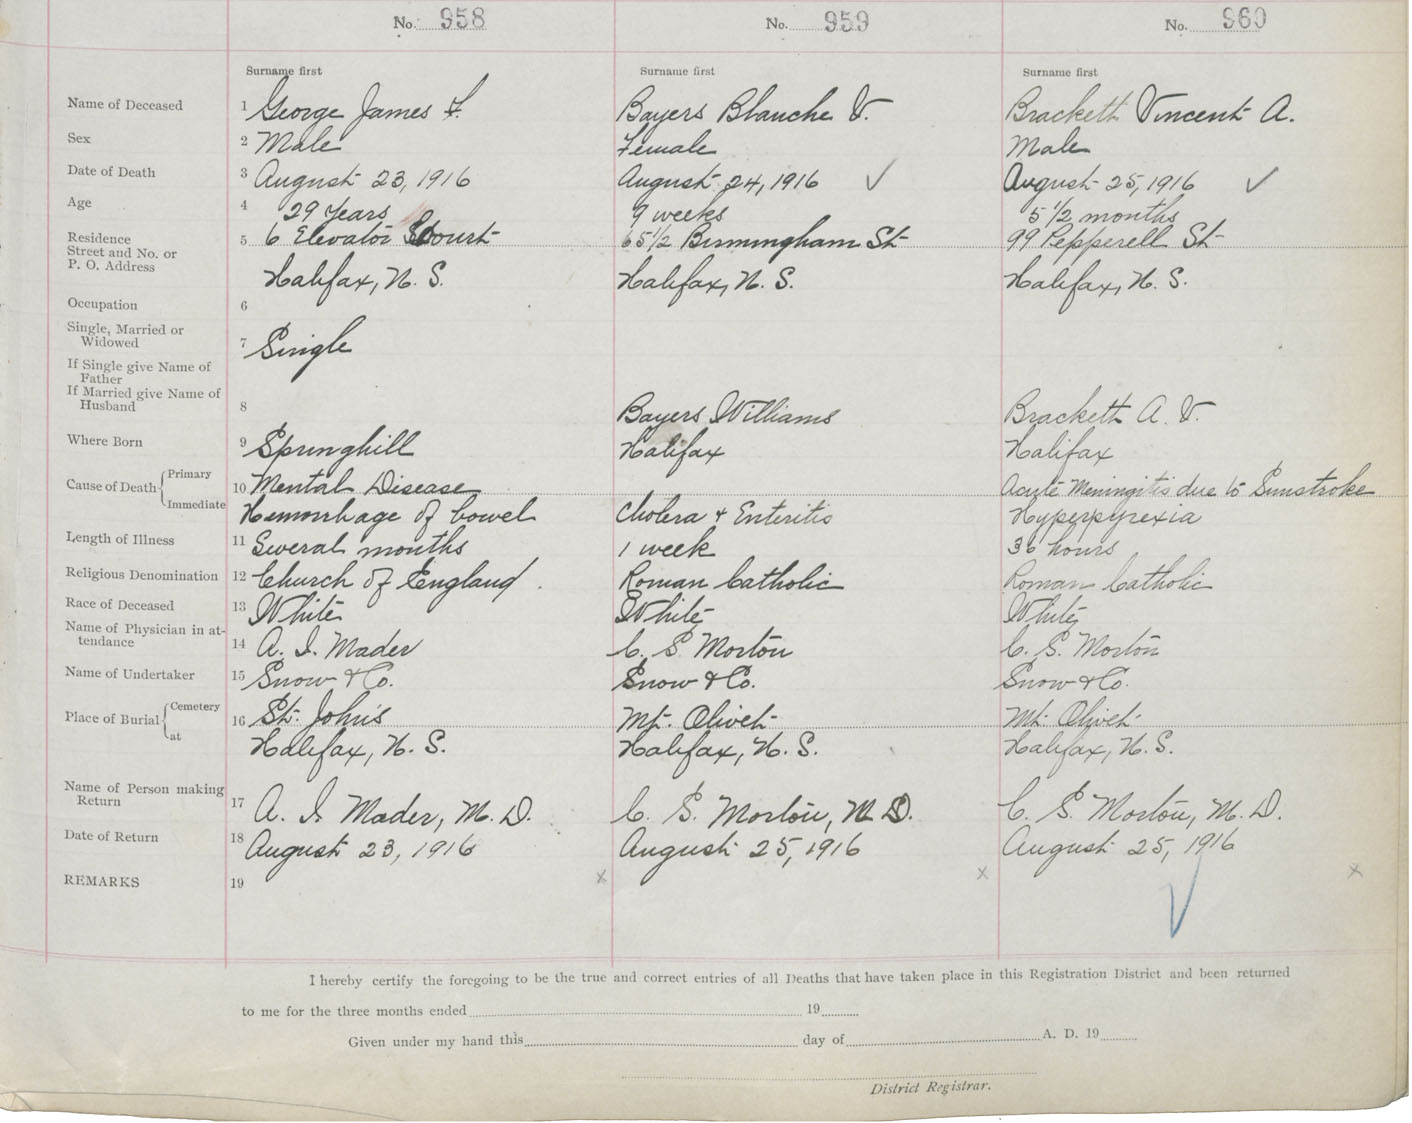 No. 958 No. 959 No. 960
Surname first Surname first Surname first
Name of Deceased 1 George James F. Bayers Blanche V. Brackett Vincent A.
Sex 2 Male Female Male
Date of Death 3 August 23, 1916 August 24, 1916 ✓ August 25, 1916 ✓
Age 4 29 years 9 weeks 5 1/2 months
Residence
Street and No. or 5 6 Elevator Court 65 1/2 Birmingham St 99 Pepperell St
P. O. Address Halifax, N. S. Halifax, N. S. Halifax, N. S.
Occupation 6
Single, Married or
Widowed 7 Single
If Single give Name of
Father
If Married give Name of
Husband 8 Bayers Williams Brackett A. V.
Where Born 9 Springhill Halifax Halifax
Cause of Death Primary 10 Mental Disease Acute Meningitis due to Sunstroke
Immediate Hemorrhage of bowel Cholera & Enteritis Hyperpyrexia
Length of Illness 11 Several months 1 week 36 hours
Religious Denomination 12 Church of England. Roman Catholic Roman Catholic
Race of Deceased 13 White White White
Name of Physician in at-
tendance 14 A. I. Mader C. S. Morton C. S. Morton
Name of Undertaker 15 Snow & Co. Snow & Co. Snow & Co.
Place of Burial Cemetery 16 St. John's Mt. Olivet Mt. Olivet
at Halifax, N. S. Halifax, N. S. Halifax, N. S.
Name of Person making
Return 17 A. I. Mader, M. D. C. S. Morton, M. D. C. S. Morton, M. D.
Date of Return 18 August 23, 1916 August 25, 1916 August 25, 1916
REMARKS 19 x x x
I hereby certify the foregoing to be the true and correct entries of all Deaths that have taken place in this Registration District and been returned
to me for the three months ended 19
Given under my hand this day of A. D. 19
District Registrar.